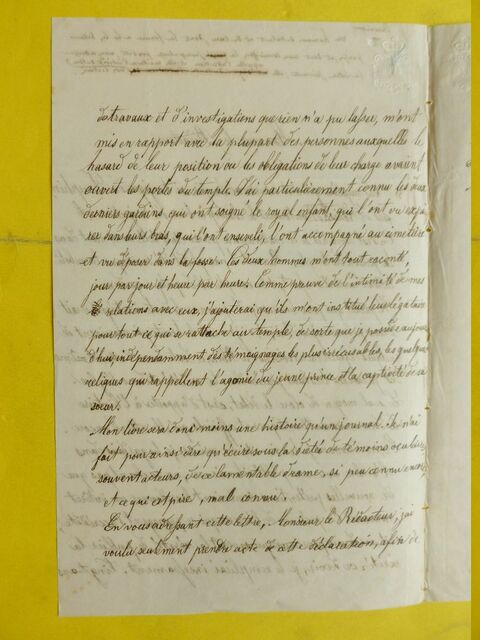 de travaux et d'investigations que rien n'a pu lasser, m'ont
mis en rapport avec la plupart des personnes auxquelles le
hasard de leur position ou les obligations de leur charge avaient
ouvert les portes du temple. J'ai particulièrement connu les deux
derniers gardiens qui ont soigné le royal enfant, qui l'ont vu expi
rer dans leurs bras, qui l'ont enseveli, l'ont accompagné au cimetière
et vu déposer dans la fosse. Ces deux hommes m'ont tout raconté,
jour par jour et heure par heure. Comme preuve de l'intimité de mes
relations avec eux, j'ajouterai qu'ils m'ont institué leur légataire
pour tout ce qui se rattache au temple, de sorte que je possède aujour
d'hui, indépendamment des témoignages les plus irrécusables, les quelques
reliques qui rappellent l'agonie du jeune prince et la captivité de sa
sœur.
Mon livre sera donc moins une histoire qu'un journal. Je n'ai
fait pour ainsi dire qu'écrire sous la dictée de témoins oculaires
souvent acteurs, de ce lamentable drame, si peu connu encore,
et ce qui est pire, mal connu.
En vous adressant cette lettre, Monsieur le Rédacteur, j'ai
voulu seulement prendre acte de cette déclaration, afin de